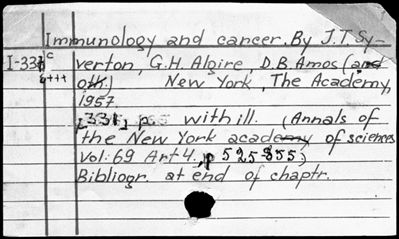 Immunology and cancer. By J.T. Sy-
I-331 c verton, G.H. Algire, D.B. Amos (and
4+++ oth.) New York, The Academy,
1957.
[331] p. with ill. (Annals of
the New York academy of sciences
vol: 69 Art 4. p 525-855;)
Bibliogr. at end of chaptr.